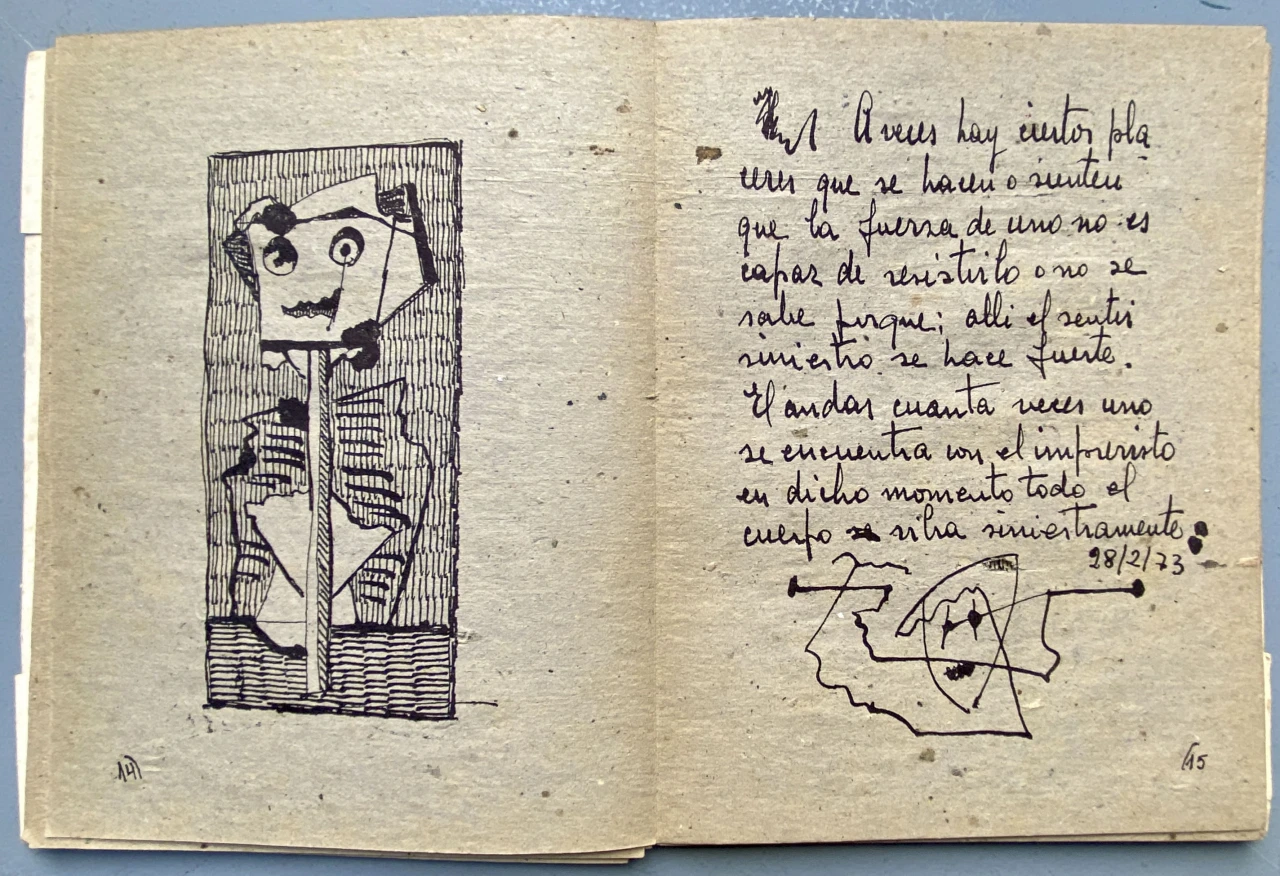 A veces hay ciertos pla
ceres que se hacen o sienten
que la fuerza de uno no es
capaz de resistirlo o no se
sabe porque; alli el sentir
siniestro se hace fuerte.
El andar cuanta veces uno
se encuentra con el imprevisto
en dicho momento todo el
cuerpo se vibra siniestramente
28/2/73
14)
(15